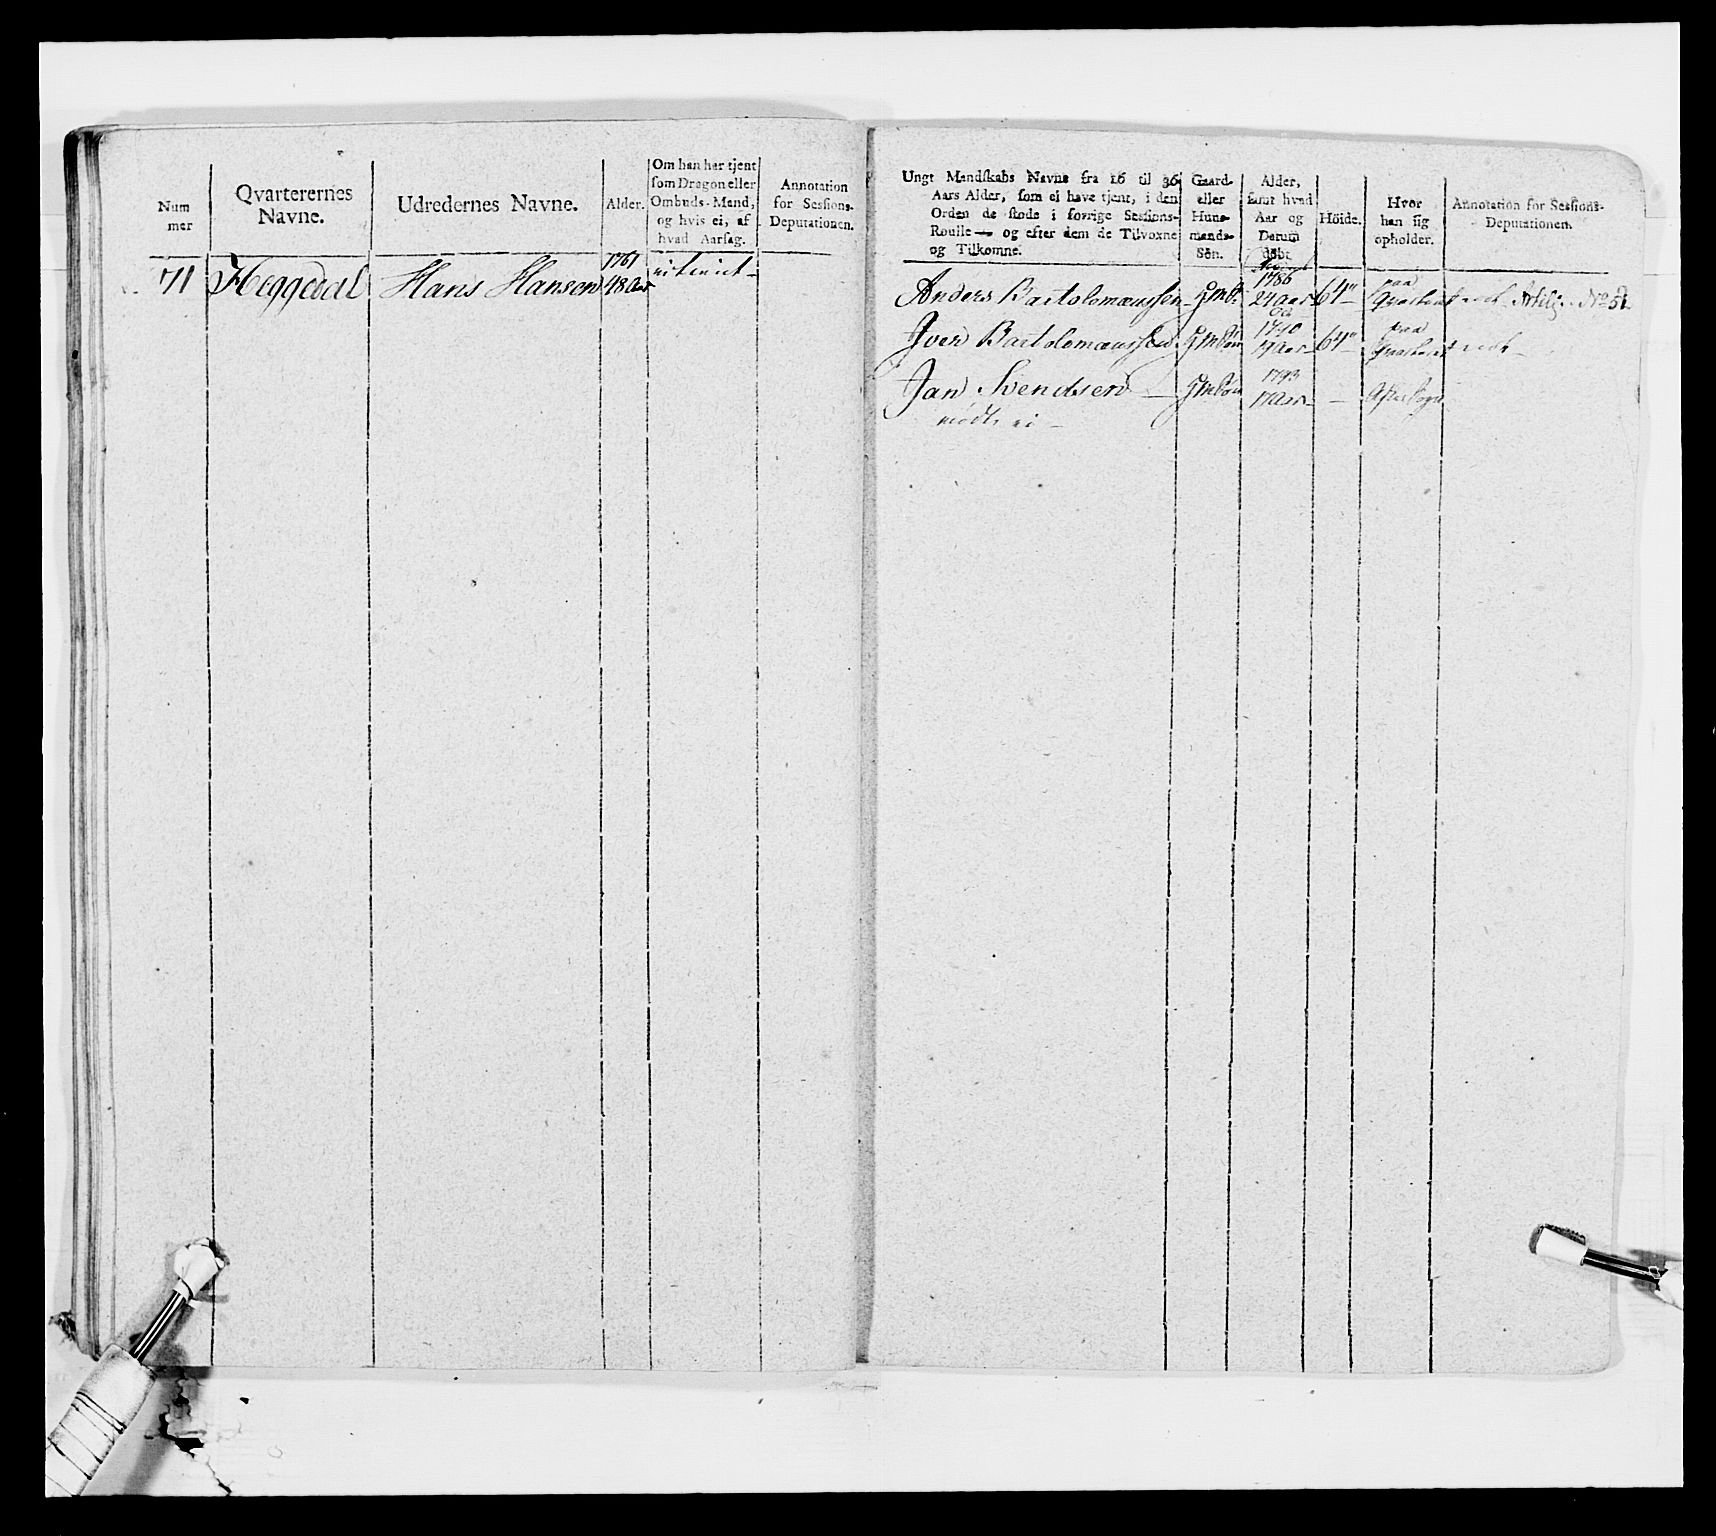 Num
mer
Qvarterernes
Navne.
Udredernes Navne.
Alder.
Om han har tjent
som Dragon eller
Ombuds-Mand,
og hvis ei, af
hvad Aarsag.
Annotation
for Sessions-
Deputationen.
71 Heggedal Hans Hansen
1761
48 Aar
ei tient
Ungt Mandskabs Navne fra 16 til 36
Aars Alder, som ei have tjent, i den
Orden de stode i forrige Sessions-
Roulle — og efter dem de Tilvoxne
og Tilkomne.
Gaard-
eller
Huus-
mands-
Sön.
Alder,
samt hvad
Aar og
Datum
födt.
Höide.
Hvor
han sig
opholder.
Annotation for Sessions-
Deputationen.
1786
paa
Anders Bartolomæussen 24 Aar 64"
1790
paa
Iver Bartolomæussen 19 Aar 64"
1793
Jan Svendsen — 17 Aar —
mödte ei —